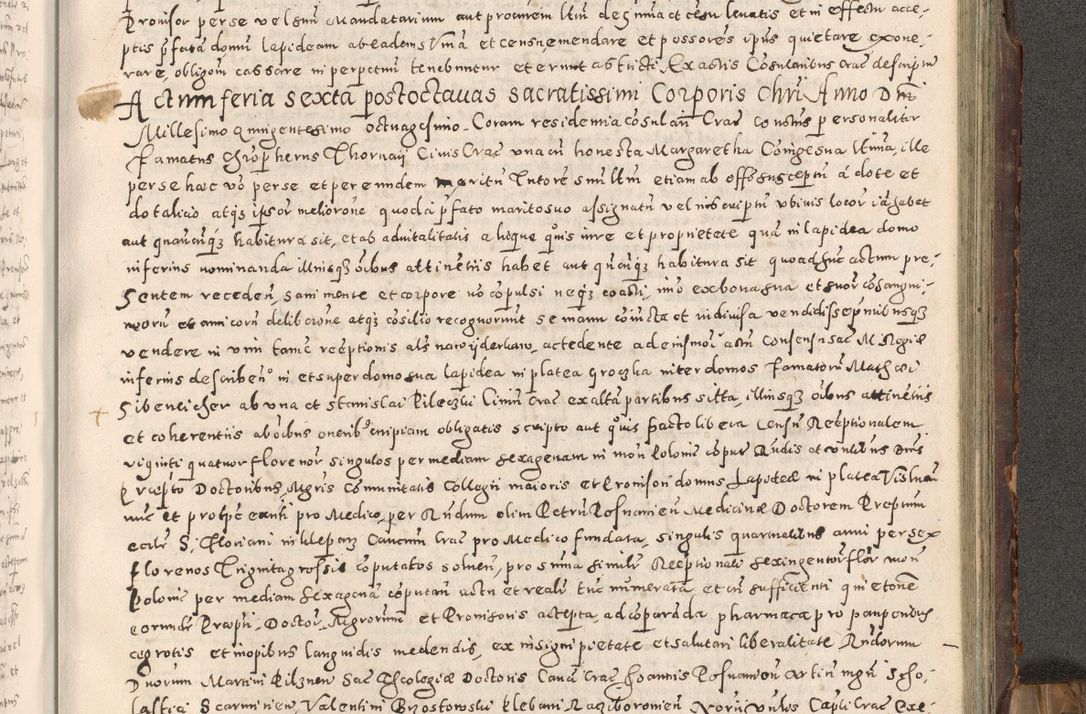 Provisor per se vel suum Mandatarium aut procurem ltim de summa et censu levatis et in effectu acce-
ptis pfatã domũ lapideam ab eadem summa et censu emendare et possores ipius quietare exone-
rare, obligom cassare in perpetuũ tenebuntur et erunt astricti. Ex actis Cosularibus Crac descriptũ
Actum feria sexta post octavas sacratissimi Corporis Chri Anno Dñi
Millesimo quingentesimo octuagesimo. Coram residentia cosulari Crac constis personaliter
famatus Chrop herus Thornaij Civis Crac una cũ honesta Margaretha Coniuge sua ltima, ille
per se haec vo per se et per eundem maritũ Tutore suũ ltim etiam ab offo susceptũ a dote et
dotalicio atqz ipsor meliorone quod a pfato marito suo assignatũ vel inscriptũ ubivis locor ia habet
aut quacunqz habitura sit, et ab advitalitatis alioque quovis iure et proprietate quã in lapidea domo
inferius nominanda illiusqz oibus attinetiis habet aut quacuqz habitura sit quoad huc actum pre-
sentem receden, sani mente et corpore no copulsi neqz coacti, imo ex bona sua et suor cosangui-
neorũ et amicorũ deliberone atqz cosilio recognoverunt se manu coiucta et indivisa vendidisse pñtibusqz
vendere in vim tamẽ reemptionis als na wijderkaw, accedente ad eiusmoi actũ consensu sac M Regie
inferius describeno in et super domo sua lapidea in platea Grodzka inter domos famatorũ Mathaei
Sibeneicher ab una et Stanislai Pileczki Civiũ Crac ex altã partibus sitta, illiusqz oibus attinetiis
et coherentiis ab oibus oneribo cuipiam obligatis scripto aut quovis facto libera censũ Reemptionalem
viginti quatuor florenor singulos per mediam sexagenam in mon Polonic coput Rudis ac
Doctoribus, Mgris Comunitatis Collegii maioris et Provisori domus Lapidee in platea Vislnen
nuc et pro tpe exnti pro Medico, per Rndum olim Petrũ Posnanien Medicinae Doctorem Preptum
ecclie S. Floriani in Kleparz Canonicũ Crac pro Medico fundata, singulis quartualibus anni per sex
florenos Triginta grossis coputatos solven, pro suma simili Reemptionali sexingentor flor mon
Polonic per mediam sexagena coputan actu et realr tuc numerata et in sufficienti
eorunde Praepti, Doctor, Mgrorum et Provisoris accepta, ad coparada pharmaca pro pauperibus
aegrotis et inopibus languidis medendis, ex insigni pietate et salutari liberalitate Rndorum
Duorum Martini Pilznen Sac Theologiae Doctoris Canci Crac Joannis Posnanien Artiũ mgri Scho-
lastici Scarmirien, Valentini Brzostowski Plebani Raciborovien Capli Crac Exe-